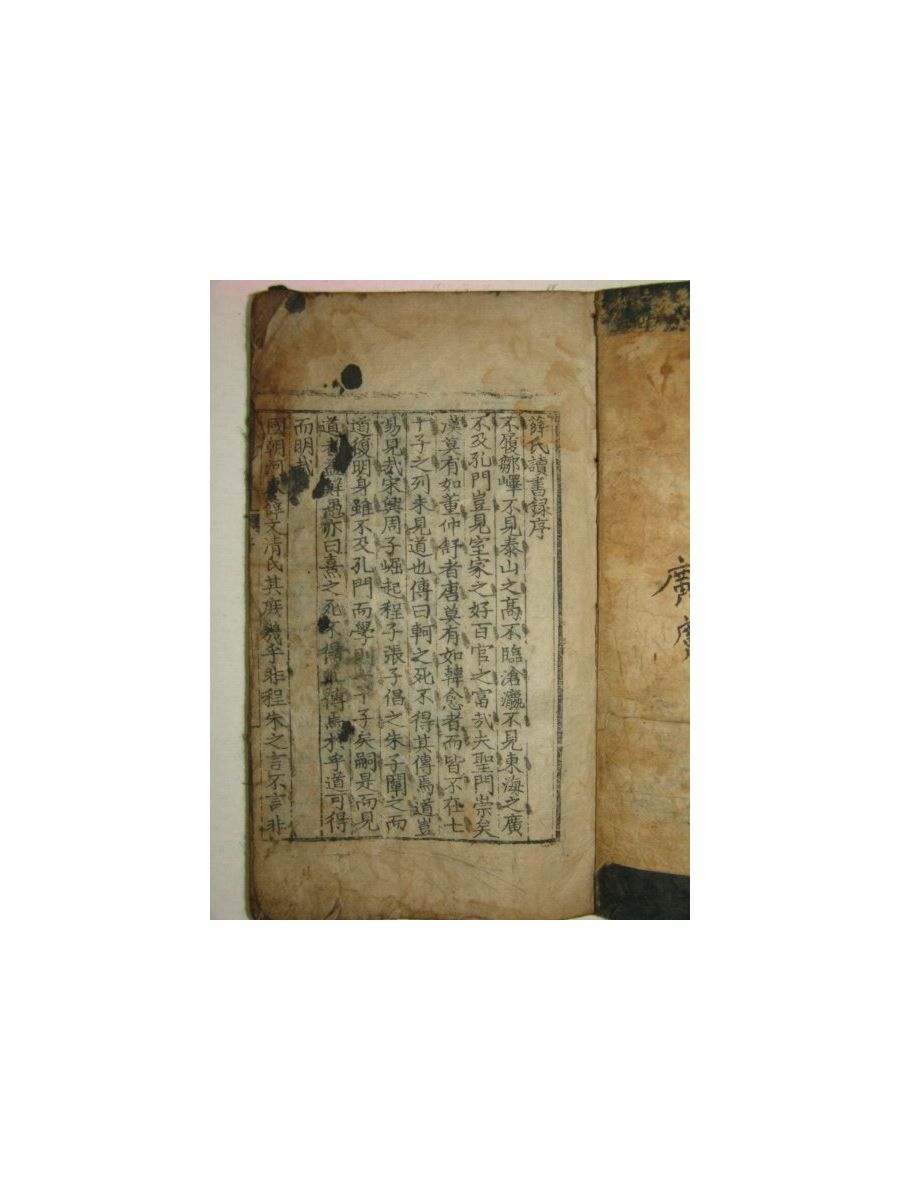 薛氏讀書録序
不履鄒嶧不見泰山之高不臨滄瀛不見東海之廣
不及孔門豈見室家之好百官之富㢤夫聖門崇矣
漢莫有如董仲舒者唐莫有如韓愈者而皆不在七
十子之列未見道也傳曰軻之死不得其傳焉道豈
易見㢤宋興周子崛起程子張子倡之朱子闡之而
道復明身雖不及孔門而學則七十子矣嗣是而見
道者益鮮愚亦曰熹之死不得其傳焉於乎道可得
而明㢤
國朝河文清氏其庶幾乎非程朱之言不言非
廣